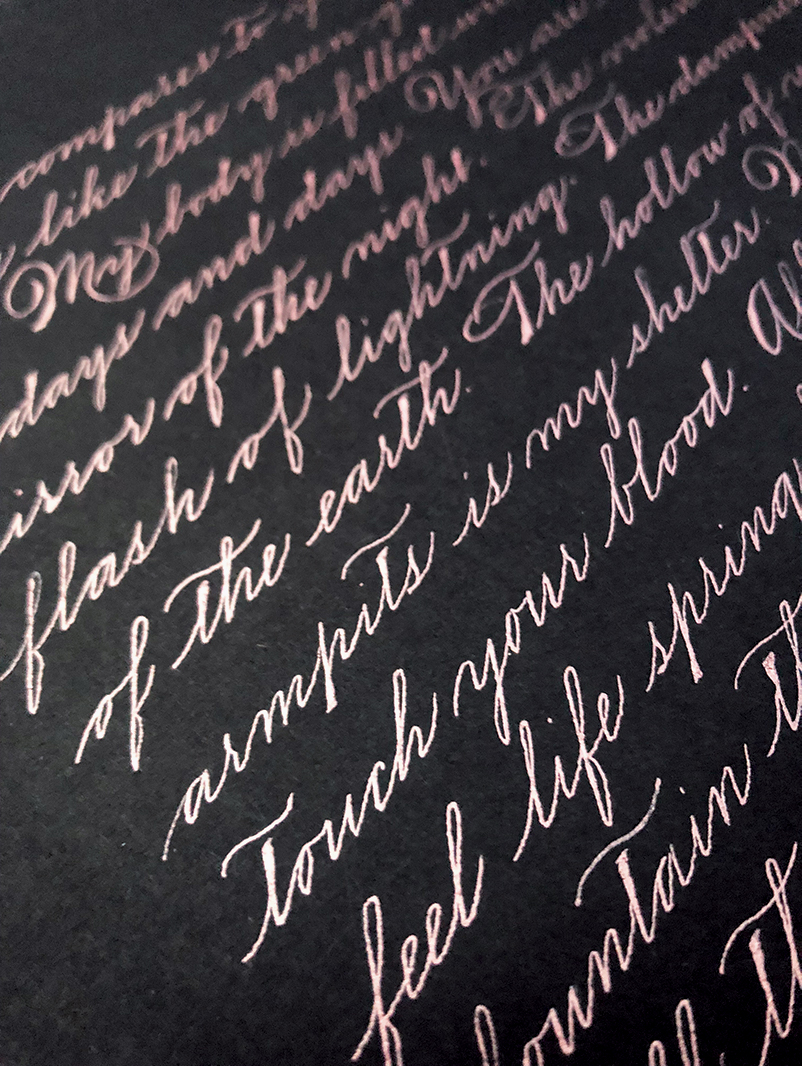 compares to
like the green
My body is filled
days and days. You are
irror of the night. The violen
flash of lightning. The dampne
of the earth. The hollow of
armpits is my shelter. M
touch your blood. Al
feel life spring
fountain th